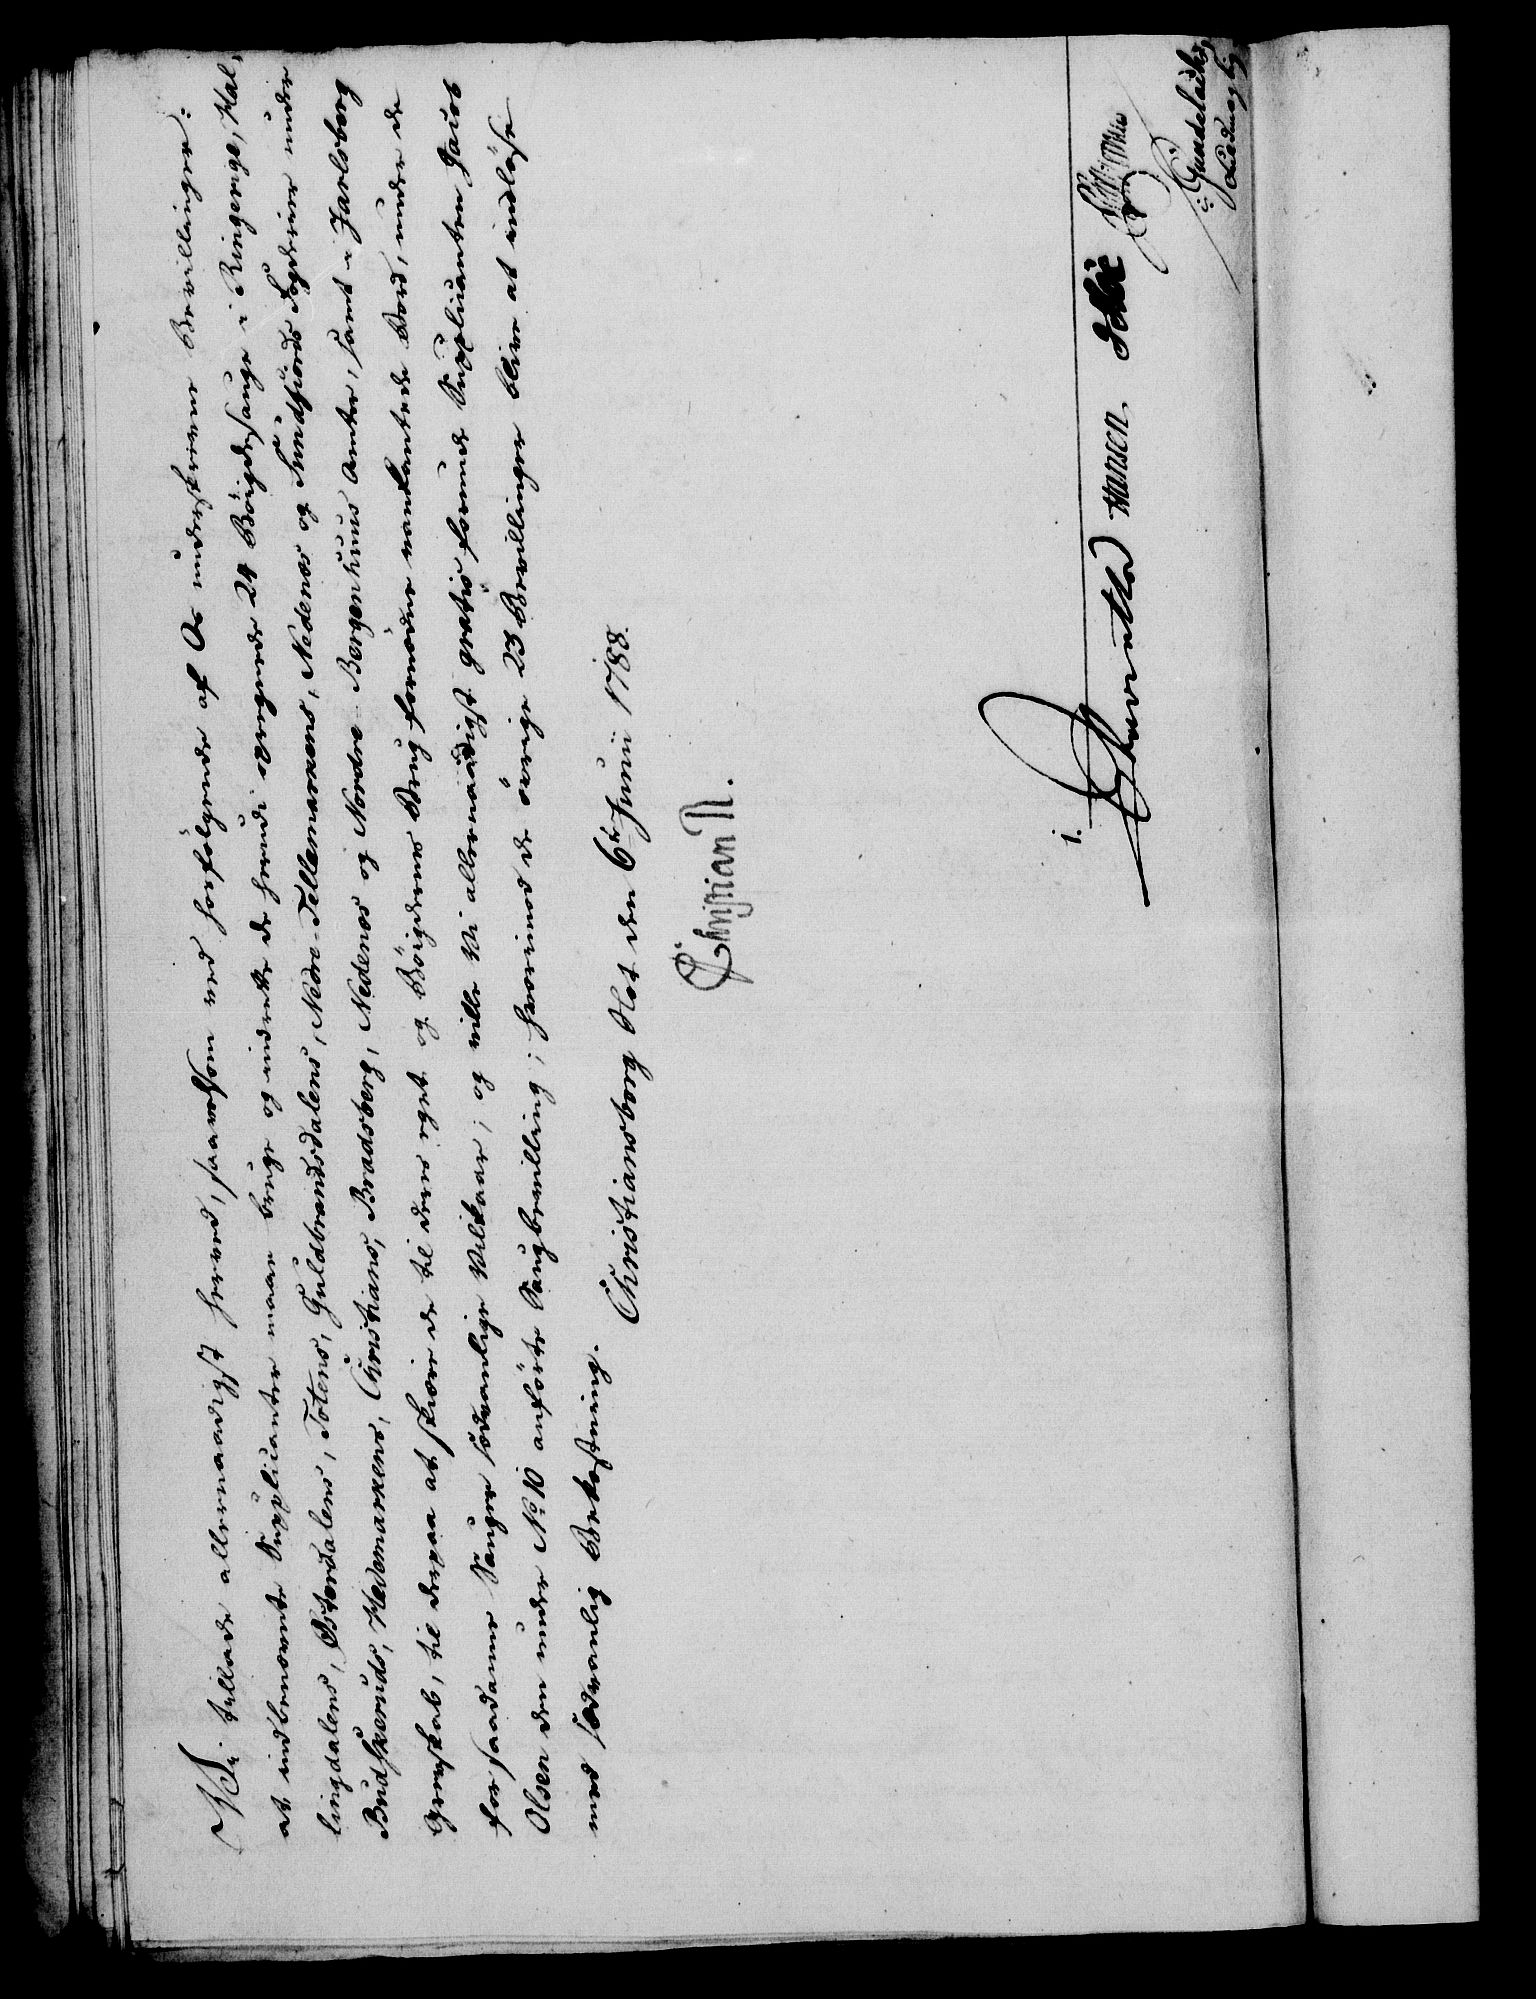 Vi tillade allernaadigst herved, saavelsom ved hosfølgende af Os underskrevne Bevillinger:
at indbenævnte Supplicanter maae bruge og indrette de herudi opregnede 24 Bøigdesauge i Ringerige, Hal-
lingdalens, Østerdalens, Totens, Guldbrandsdalens, Nedre-Tellemarkens, Nedenes og Sundfiords Fogderier under
Budskeruds, Hedemarkens, Christians, Bradsberg, Nedenes og Nordre-Bergenhuus Amter, samt i Jarlsberg
Grevskab, til derpaa at skiære de til deres eget og Bøigdernes Brug fornødne vankantede Bord, under de
for saadanne Sauger sædvanlige Vilkaar; og ville Vi allernaadigst gratis forunde Supplicanten Jacob
Olsen den under No. 10 anførte Saugbevilling; hvorimod de øvrige 23 Bevillinger blive at indløse
med sædvanlig Bekostning.
Christiansborg Slot den 6te Junii 1788.
Christian R.
Hansen